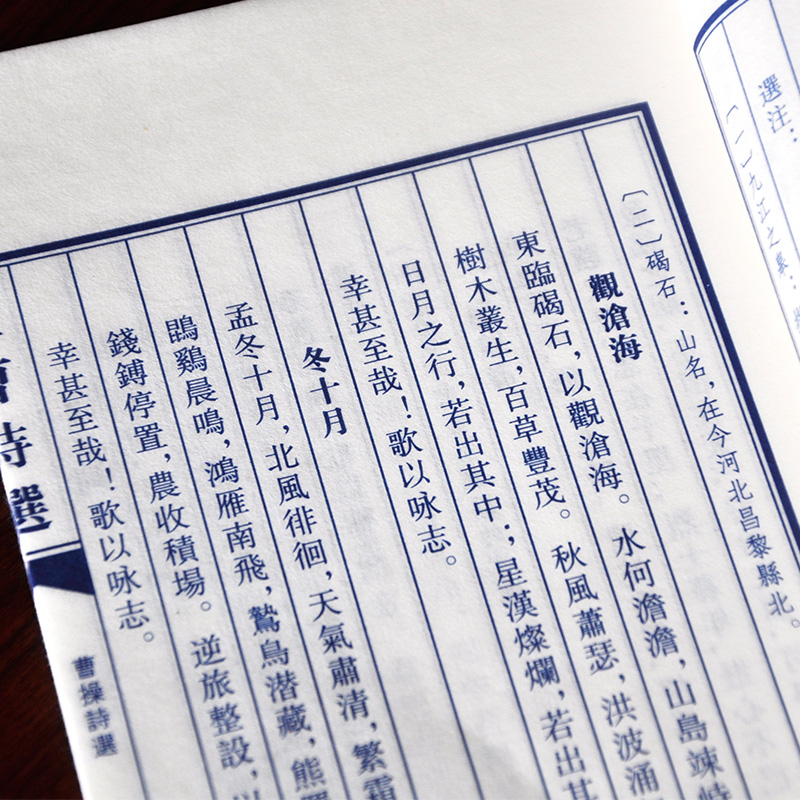 選注：
〔一〕九江之
〔二〕碣石：山名，在今河北昌黎縣北。
觀滄海
東臨碣石，以觀滄海。水何澹澹，山島竦峙
樹木叢生，百草豐茂。秋風蕭瑟，洪波涌
日月之行，若出其中；星漢燦爛，若出其
幸甚至哉！歌以咏志。
冬十月
孟冬十月，北風徘徊，天氣肅清，繁霜
鵾鷄晨鳴，鴻雁南飛，鷙鳥潜藏，熊
錢鎛停置，農收積場。逆旅整設，
幸甚至哉！歌以咏志。
詩選
曹操詩選